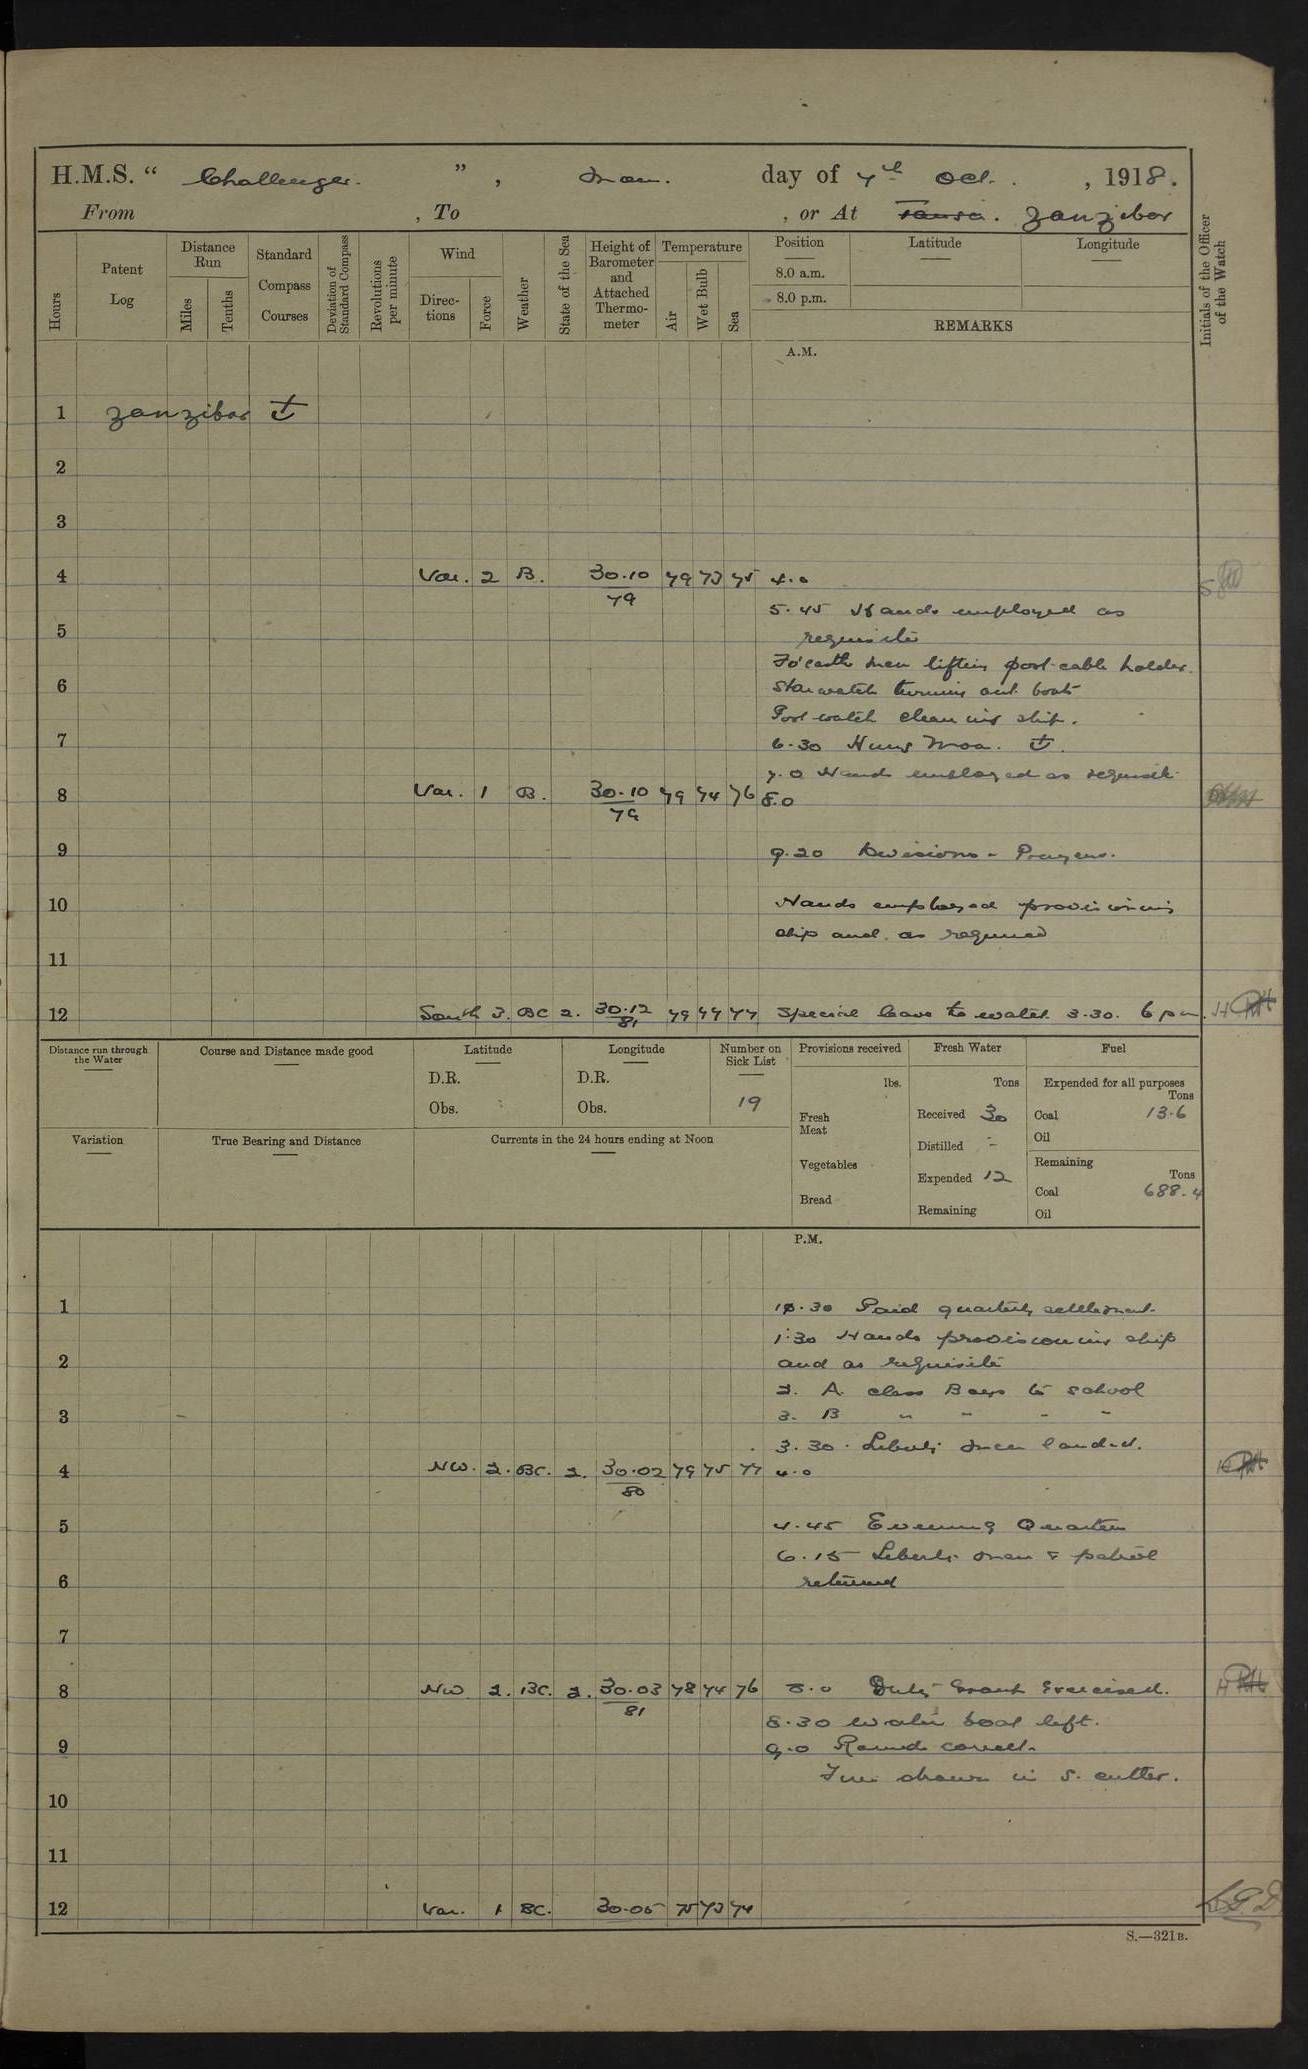 H.M.S. “ Challenger. ”, Mon. day of 7th Oct. , 1918.
From , To , or At Tanga. Zanzibar
Hours
Patent Log
Distance Run
Miles
Tenths
Standard Compass Courses
Deviation of Standard Compass
Revolutions per minute
Wind
Directions
Force
Weather
State of the Sea
Height of Barometer and Attached Thermometer
Temperature
Air
Wet Bulb
Sea
Position
Latitude
Longitude
8.0 a.m.
8.0 p.m.
REMARKS
Initials of the Officer of the Watch
A.M.
1 Zanzibar
2
3
4 Var. 2 B. 30.10 79 73 75 4.0
79
5.45 Hands employed as
5 requisite
Fo'castle men lifting port cable holder.
6 Star watch turning out boats
Port watch cleaning ship.
7 6.30 Hung Moa.
7.0 Hands employed as requisite
8 Var. 1 B. 30.10 79 74 76 8.0
79
9 9.20 Divisions - Prayers.
10 Hands employed provisioning
ship and as required
11
12 South 3. BC 2. 30.12 79 77 77 Special leave to watch 3.30. 6 pm.
81
Distance run through the Water
Course and Distance made good
Latitude
D.R.
Obs.
Longitude
D.R.
Obs.
Number on Sick List
19
Provisions received
lbs.
Fresh Meat
Vegetables
Bread
Fresh Water
Tons
Received 30
Distilled -
Expended 12
Remaining
Fuel
Expended for all purposes
Tons
Coal 13.6
Oil
Remaining
Tons
Coal 688.4
Oil
Variation
True Bearing and Distance
Currents in the 24 hours ending at Noon
P.M.
1 Paid quarterly settlement.
1.30 Hands provisioning ship
2 and as requisite
2. A class Boys to school
3 3. B " " " "
3.30. Liberty men landed.
4 NW. 2. BC. 2. 30.02 79 75 77 4.0
80
5 4.45 Evening Quarters
6.15 Liberty men & patrol
6 returned
7
8 NW 2. BC. 2. 30.03 78 74 76 8.0 Duty Watch Exercised.
81
8.30 water boat left.
9 9.0 Rounds correct.
in S. cutter.
10
11
12 Var. 1 BC. 30.05 75 73 74
S.—321B.